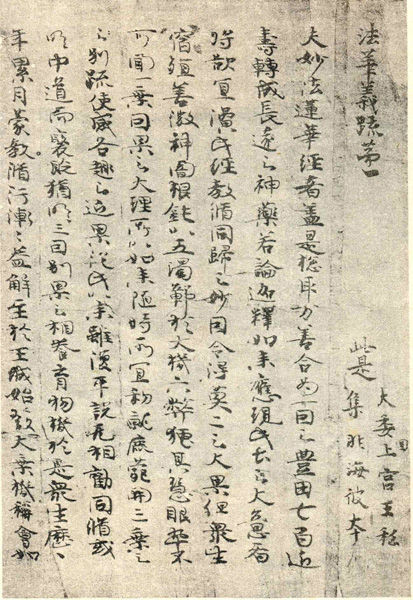 法華義疏第一
大委国上宮王私
此是集非海彼本
夫妙法蓮華經者蓋是惣取万善合為一因之豊田七百近
壽轉成長遠之神藥若論迦釋如来應現此土之大意者
将欲宜演此經教脩同歸之妙因令得莫二之大果但衆生
宿殖善微神闇根鈍以五濁鄣於大機六弊掩其慧眼卒不
可聞一乗因果之大理所以如来随時所宜初就鹿苑開三乗之
別疏使感各趣之近果從此以来雖復平説无相勸同脩或
明中道而褒貶猶明三因別果之相養育物機於是衆生歴
年累月蒙教脩行漸々益解至於王城始發大乗機稱會如